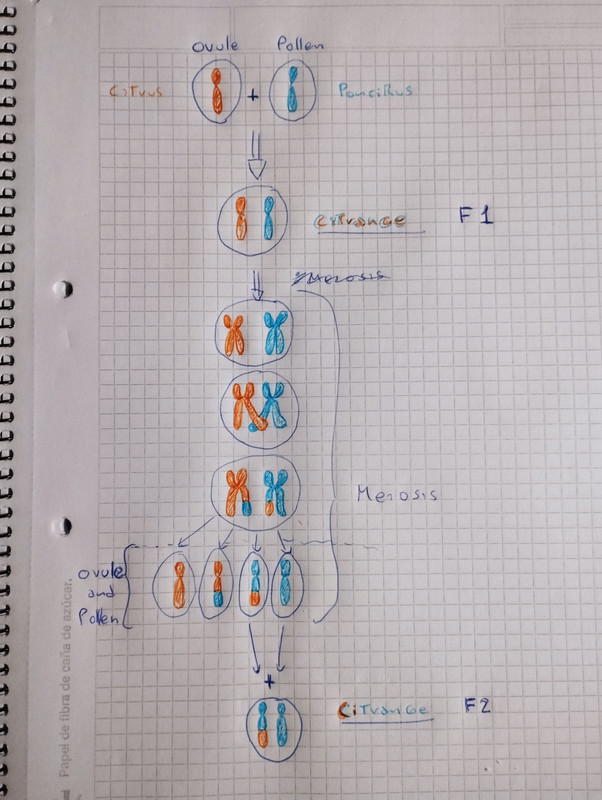 Ovule Pollen
Citrus + Poncirus
Citrange F1
Meiosis
Meiosis
Ovule
and
Pollen
+
Citrange F2
Papel de fibra de caña de azúcar.